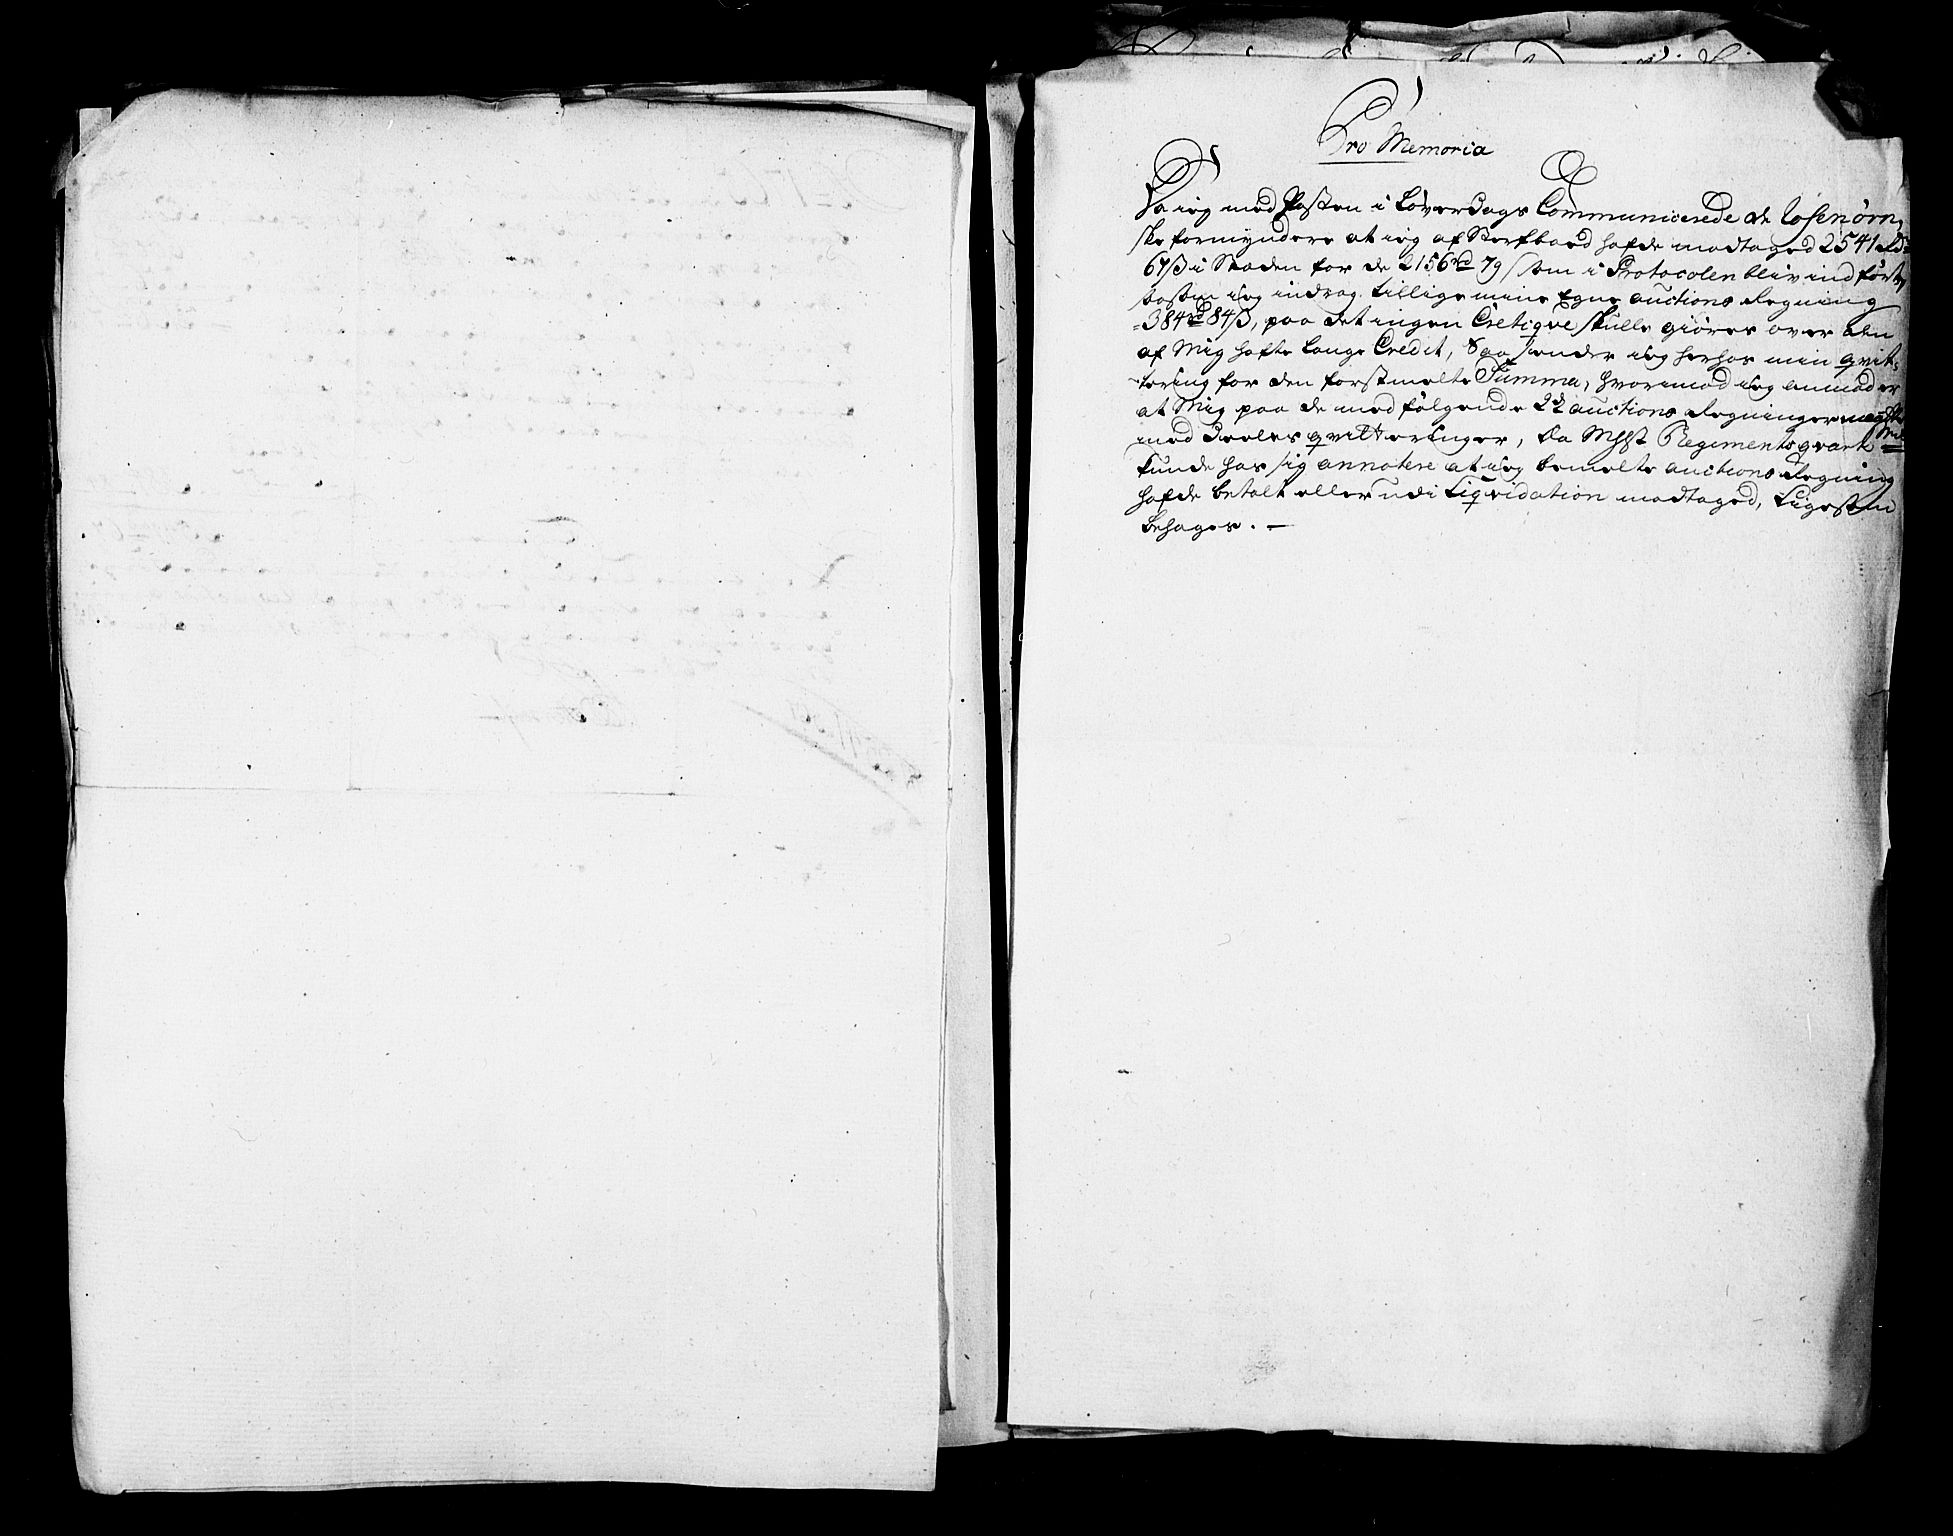 Pro Memoria
Da ieg med Posten i Løverdags Communicerede de Losenørn,
ske formyndere at ieg af Sterfboed hafde modtaged 2541 rd
67 ß i Steden for de 2156 rd 79 ß som i Protocolen bliv indført,
saasom ieg indrog tillige mine Egne auctions Regning
384 rd 84 ß, paa det ingen Cretiqve skulle giøres over den
af Mig hafte lange Credit, Saa sender ieg herhos min qvit,
tering for den førstmelte Summa, hvorimod ieg anmoder
at Mig paa de medfølgende 22 auctions Regninger
med deeles qvitteringer, da Regimentsqvarte
kunde hos sig annotere at ieg bemelte auctions Regning
hafde betalt eller udi Liqvidation modtaged, Ligesom
behages. —